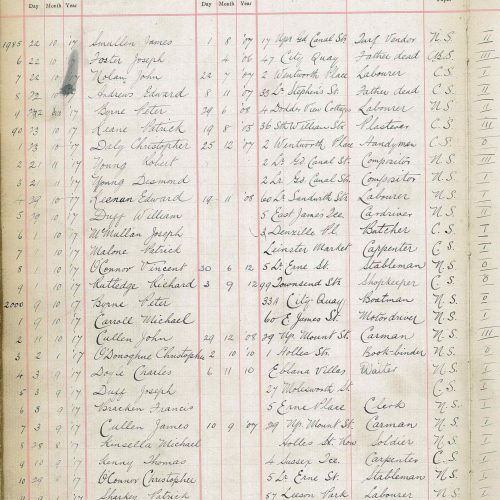 Day Month Year Day Month Year
1985 22 10 '17 Smullen James 1 8 '07 17 Upr Gd Canal St. Turf Vendor N.S. II
6 22 10 '17 Foster Joseph 4 06 47 City Quay Father dead C.B.S. III
7 22 10 '17 Nolan John 22 7 '07 2 Wentworth Place Labourer C.S. I
8 22 10 '17 Andrews Edward 8 11 07 33 Lr Stephen's St. Father dead C.S. II
9 22 10 '17 Byrne Peter 29 6 '08 4 Dodder View Cottages Labourer N.S. I
90 23 10 '17 Keane Patrick 19 8 '05 36 Sth William St. Plasterer C.S. III
1 23 10 '17 Daly Christopher 25 12 '07 2 Wentworth Place Handyman C.S. 0
2 21 11 '17 Young Robert 2 Lr. Gd. Canal St. Compositor N.S. III
3 21 '17 Young Desmond 2 Lr. Gs. Canal St. Compositor N.S. I
4 29 10 '17 Keenan Edward 19 11 '08 60 Lr Sandwith St. Labourer N.S. I
5 29 10 '17 Duff William 5 East James Tce. Cardriver N.S. I
6 1 '17 McMullan Joseph 3 Denzille Pl Butcher C.S. I
7 10 '17 Malone Patrick Leinster Market Carpenter C.S. I
8 1 '17 O'Connor Vincent 30 6 12 5 Lr Erne St. Stableman N.S. 0
9 10 '17 Rutledge Richard 3 9 12 99 Townsend St. Shopkeeper C.S. 0
2000 9 10 '17 Byrne Peter 33A City Quay Boatman N.S.
1 9 10 '17 Carroll Michael 60 E. James St. Motordriver N.S. I
2 11 10 '17 Cullen John 29 12 08 29 Up. Mount St. Carman N.S. III
3 2 '17 O'Donoghue Christopher 2 10 10 1 Holles St. Book-binder N.S. 0
4 3 9 '17 Doyle Charles 6 11 10 Eblana Villas Waiter N.S. I
5 3 '17 Duff Joseph 27 Molesworth St. C.S. I
6 3 9 '17 Bracken Francis 5 Erne Place Clerk N.S. I
7 3 9 '17 Cullen James 10 9 '07 29 Up. Mount St. Carman N.S. I
8 28 8 '17 Kinsella Michael Holles St. Row Soldier N.S. I
9 10 9 '17 Kenny Thomas 4 Sussex Tce. Carpenter C.S. I
10 29 8 '17 O'Connor Christopher 5 Lr Erne St. Stableman N.S. I
Sharkey Patrick 87 Leeson Park Labourer N.S.